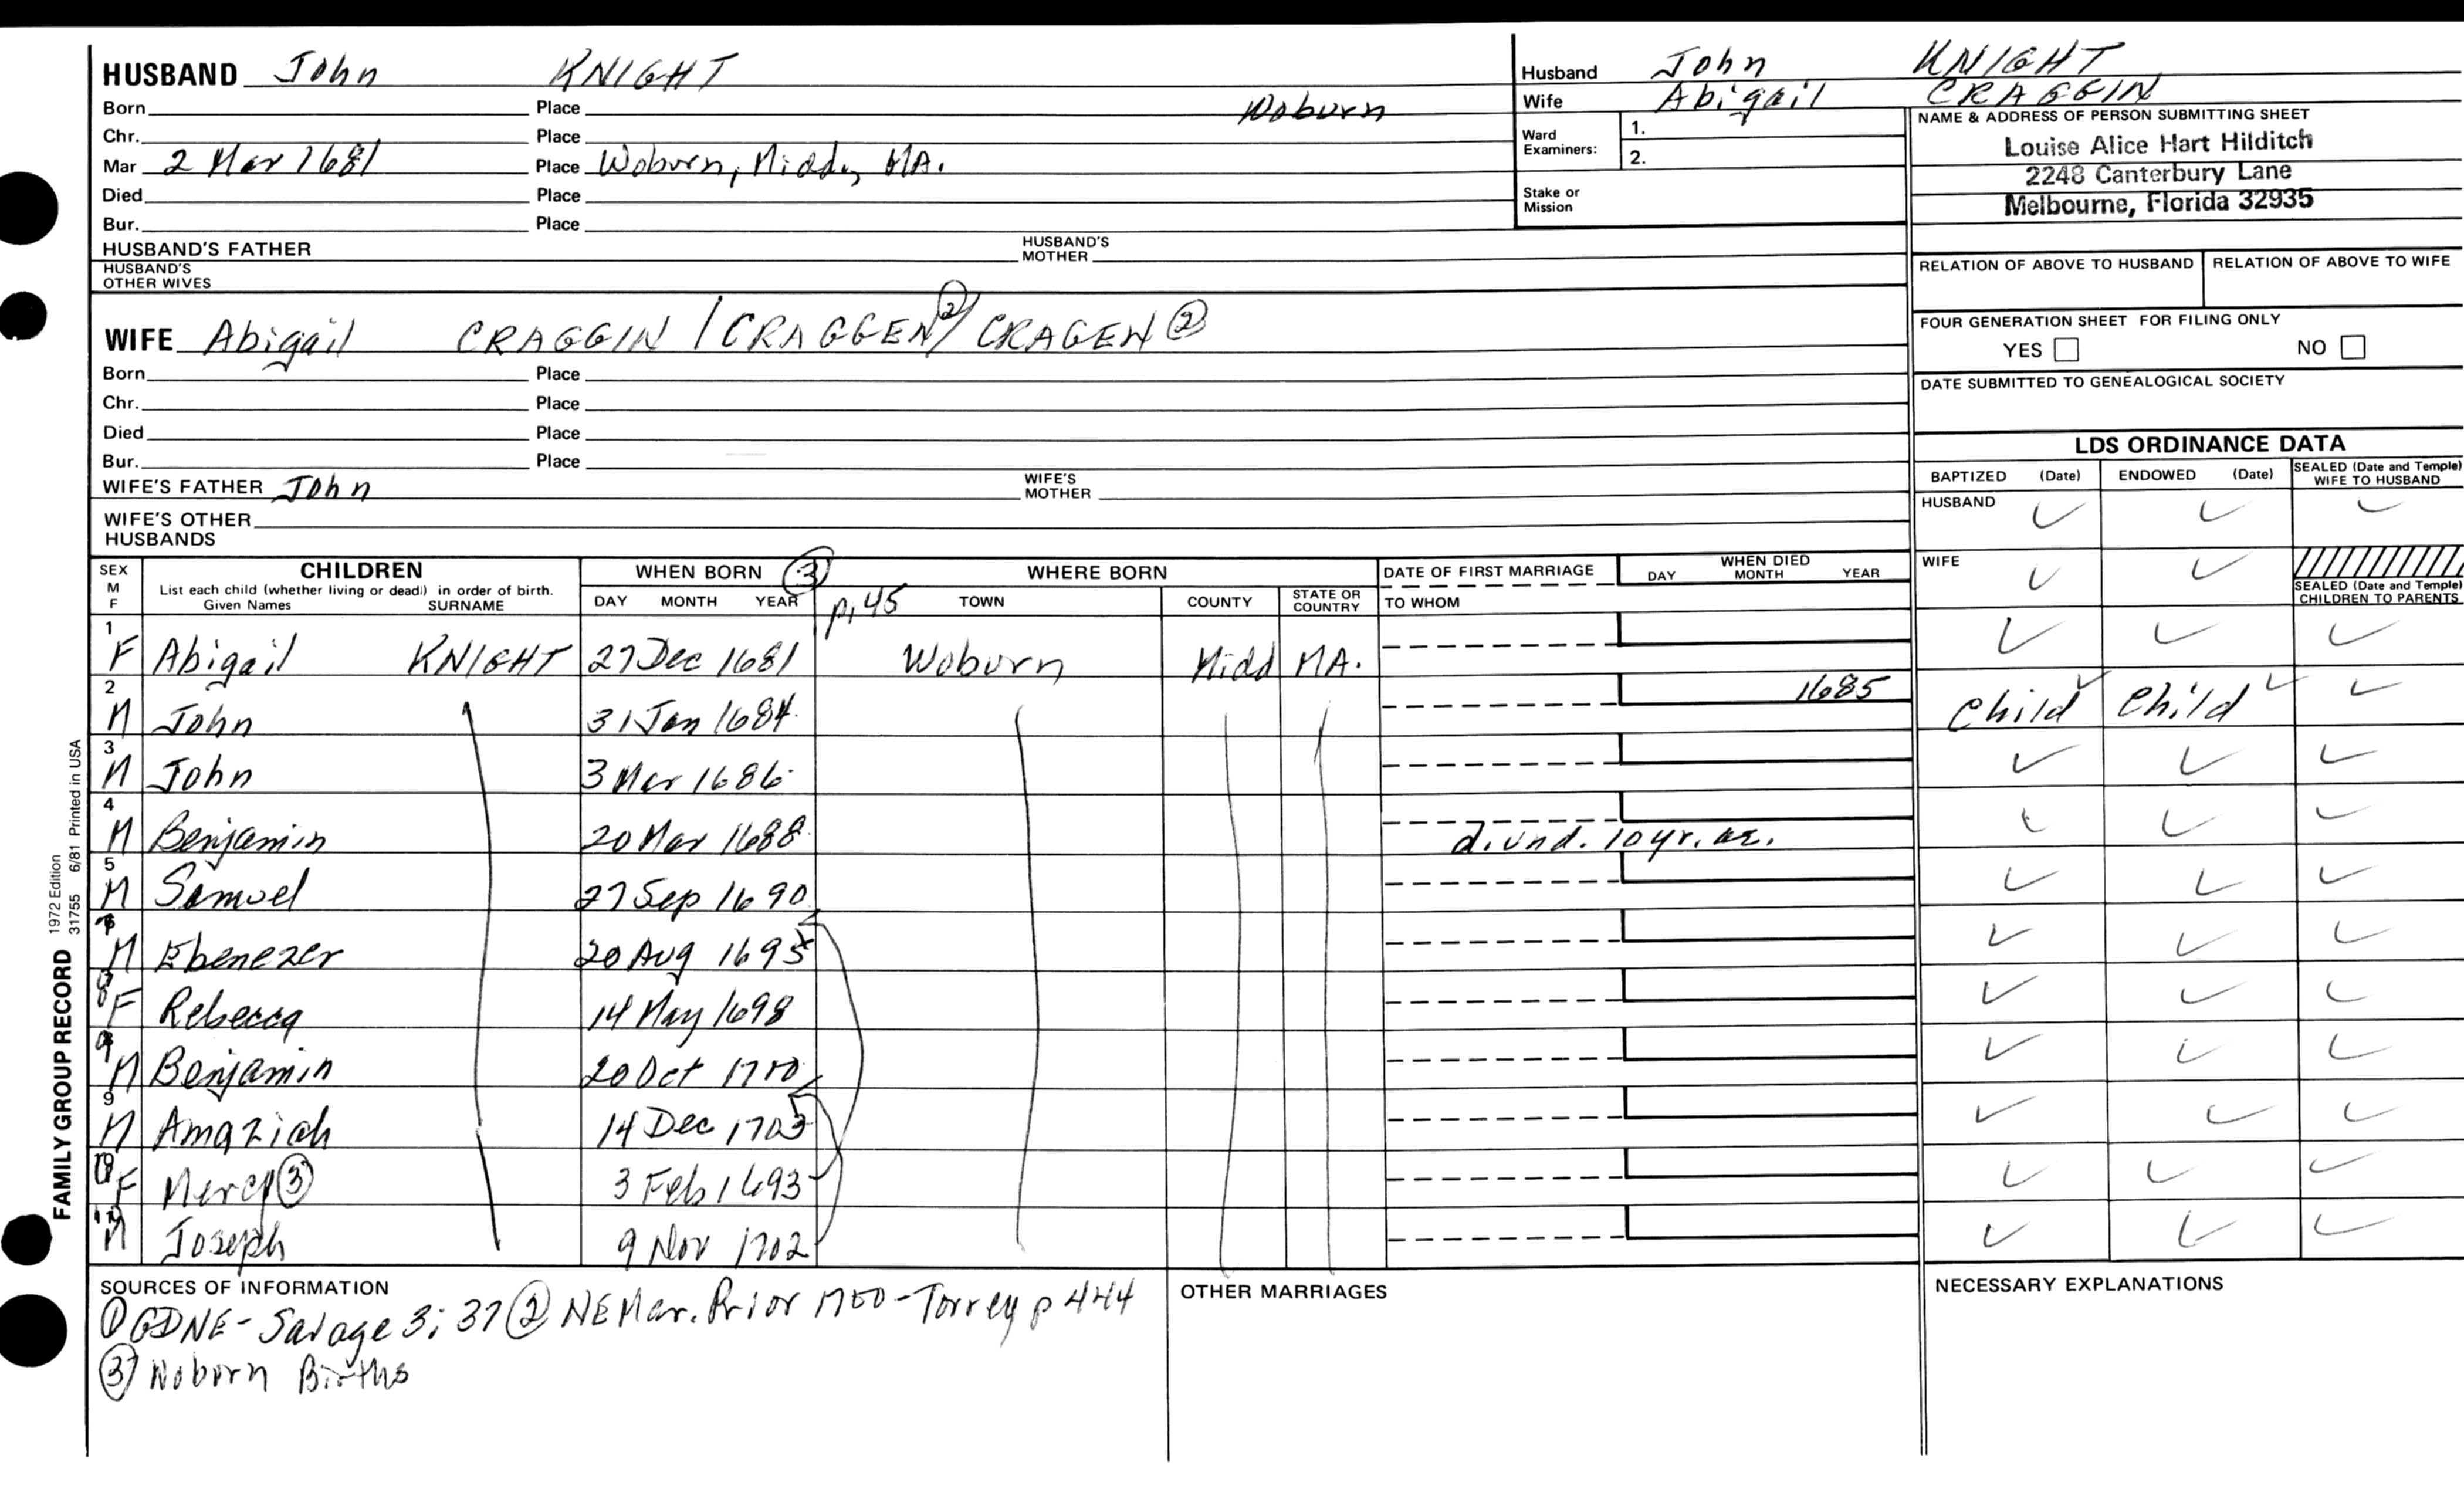 HUSBAND John KNIGHT
Born Place Woburn
Chr. Place
Mar 2 Mar 1681 Place Woburn, Midd, MA.
Died Place
Bur. Place
HUSBAND'S FATHER HUSBAND'S MOTHER
HUSBAND'S OTHER WIVES
WIFE Abigail CRAGGIN / CRAGGEN ② / CRAGEN ②
Born Place
Chr. Place
Died Place
Bur. Place
WIFE'S FATHER John WIFE'S MOTHER
WIFE'S OTHER HUSBANDS
Husband John KNIGHT
Wife Abigail CRAGGIN
Ward Examiners: 1.
2.
Stake or Mission
NAME & ADDRESS OF PERSON SUBMITTING SHEET
Louise Alice Hart Hilditch
2248 Canterbury Lane
Melbourne, Florida 32935
RELATION OF ABOVE TO HUSBAND RELATION OF ABOVE TO WIFE
FOUR GENERATION SHEET FOR FILING ONLY
YES NO
DATE SUBMITTED TO GENEALOGICAL SOCIETY
LDS ORDINANCE DATA
BAPTIZED (Date) ENDOWED (Date) SEALED (Date and Temple) WIFE TO HUSBAND
HUSBAND ✓ ✓ ✓
WIFE ✓ ✓
SEALED (Date and Temple) CHILDREN TO PARENTS
SEX M F CHILDREN WHEN BORN ③ WHERE BORN DATE OF FIRST MARRIAGE WHEN DIED
List each child (whether living or dead) in order of birth.
Given Names SURNAME DAY MONTH YEAR p. 45 TOWN COUNTY STATE OR COUNTRY TO WHOM DAY MONTH YEAR
1 F Abigail KNIGHT 27 Dec 1681 Woburn Midd MA. ✓ ✓ ✓
2 M John 31 Jan 1684 1685 Child ✓ Child ✓ ✓
3 M John 3 Mar 1686 ✓ ✓ ✓
4 M Benjamin 20 Mar 1688 d. und. 10 yr. ✓ ✓ ✓
5 M Samuel 27 Sep 1690 ✓ ✓ ✓
7 M Ebenezer 20 Aug 1695 ✓ ✓ ✓
8 F Rebecca 14 May 1698 ✓ ✓ ✓
9 M Benjamin 20 Oct 1700 ✓ ✓ ✓
9 M Amaziah 14 Dec 1703 ✓ ✓ ✓
F Mercy ③ 3 Feb 1693 ✓ ✓ ✓
M Joseph 9 Nov 1702 ✓ ✓ ✓
SOURCES OF INFORMATION
① GDNE - Savage 3: 37 ② NE Mar. Prior 1700 - Torrey p 444
③ Woburn Births
OTHER MARRIAGES
NECESSARY EXPLANATIONS
FAMILY GROUP RECORD 1972 Edition
31755 6/81 Printed in USA